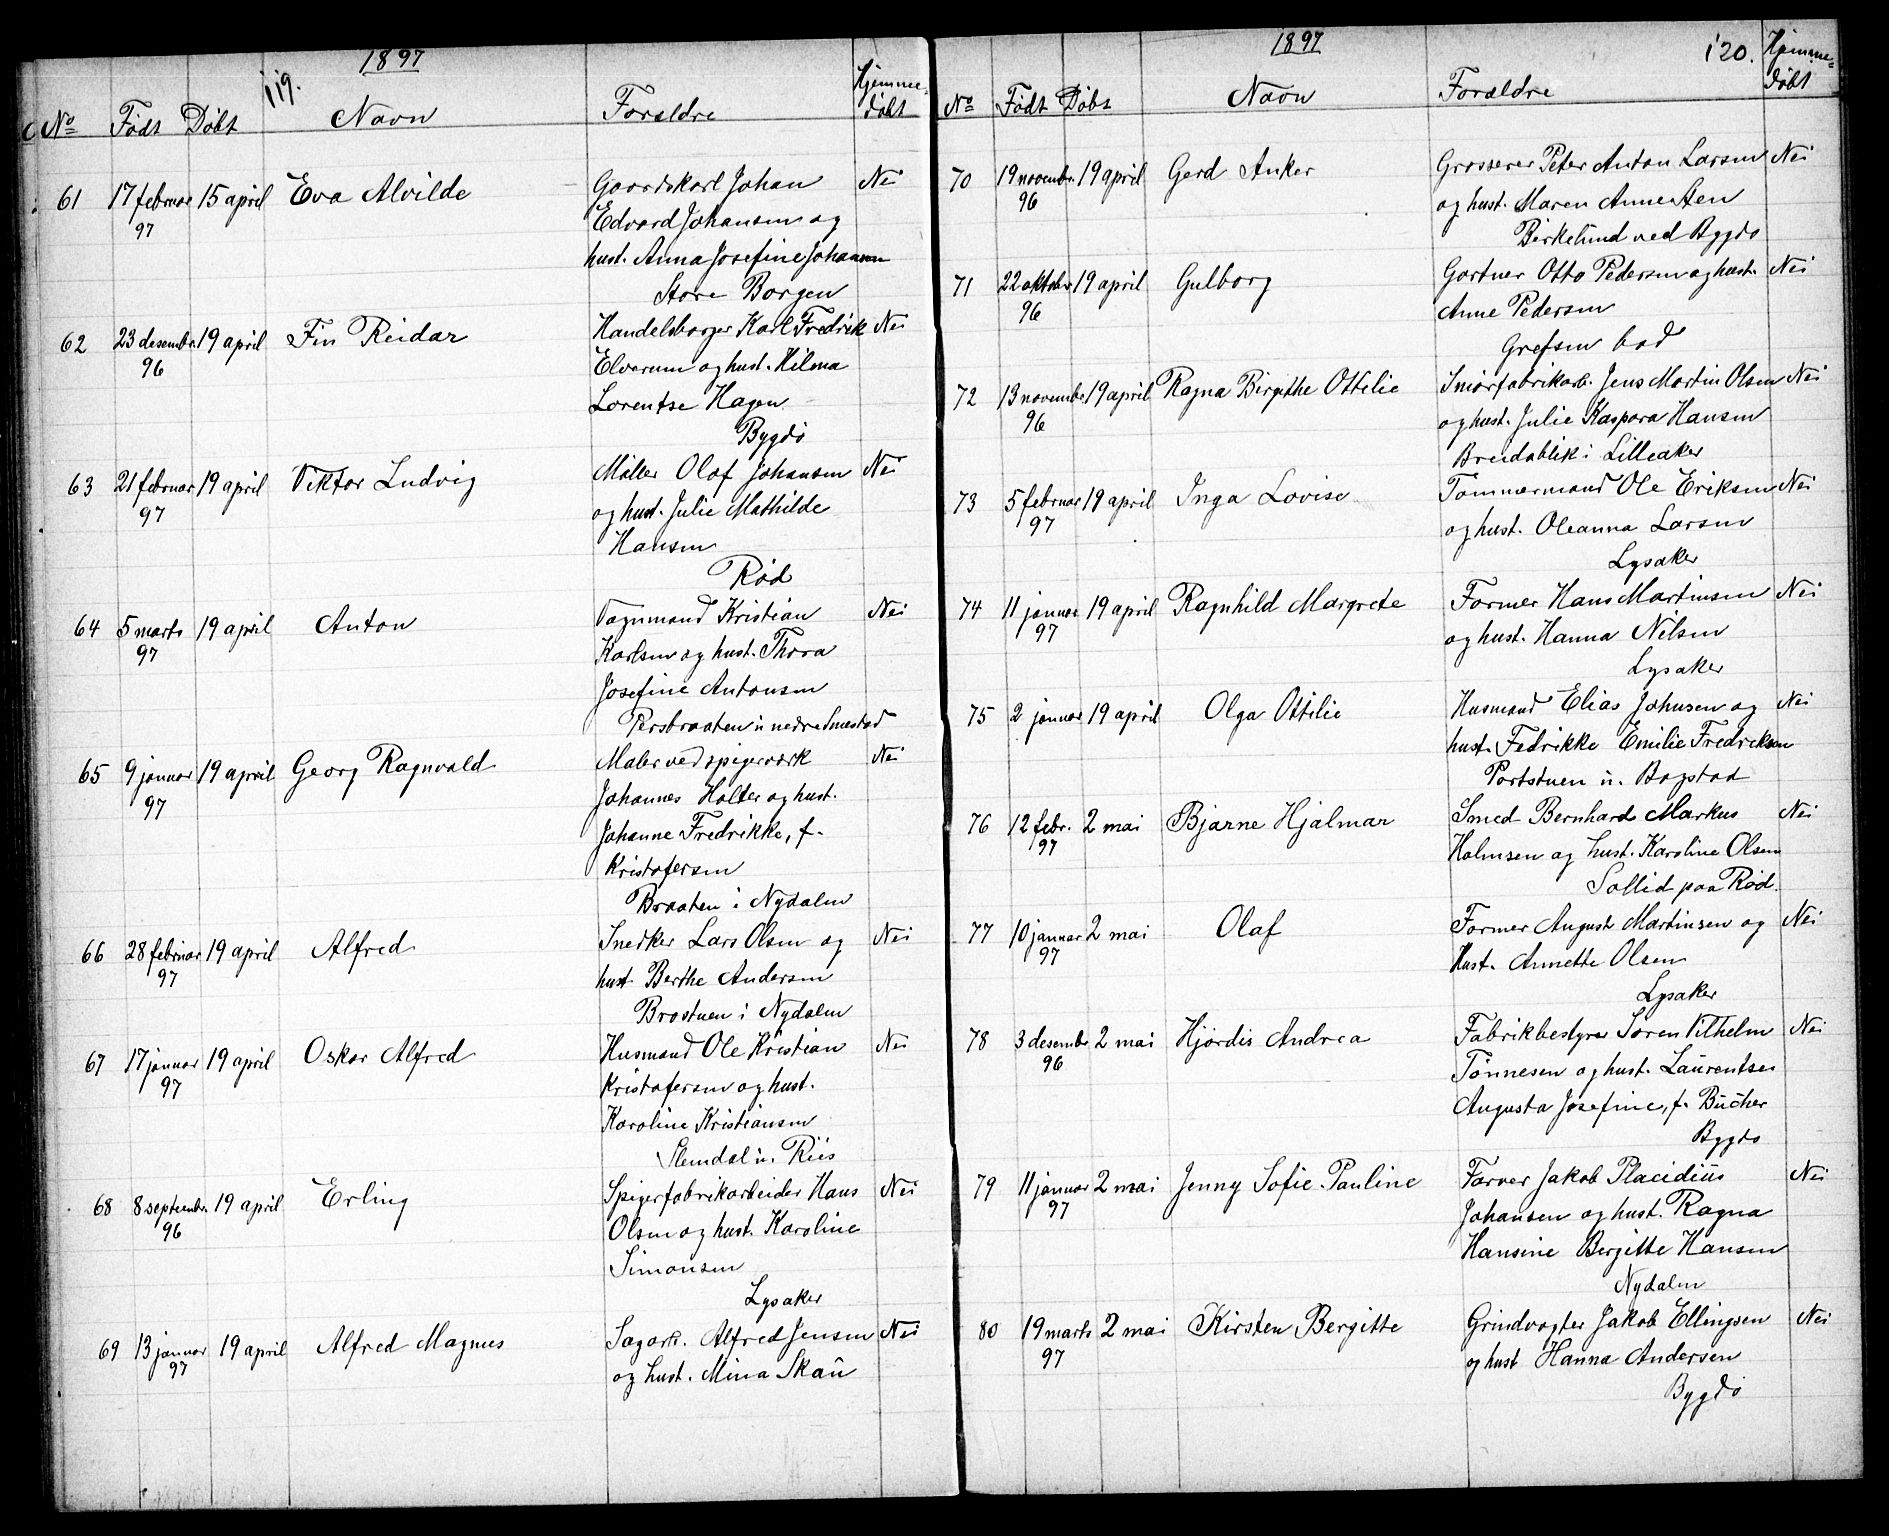 1897
119.
No Født Døbt Navn Forældre Hjemme-
døbt
61 17 februar 15 april Eva Alvilde Gaardskarl Johan Nei
97 Edvard Johansen og
hust. Anna Josefine Johansen
Store Borgen
62 23 desembr. 19 april Fin Reidar Handelsborger Karl Fredrik Nei
96 Elverum og hust. Hilma
Lorentse Hagen
Bygdö
63 21 februar 19 april Viktor Ludvig Møller Olaf Johansen Nei
97 og hust. Julie Mathilde
Hansen
Rød
64 5 marts 19 april Anton Vognmand Kristian Nei
97 Karlsen og hust. Thora
Josefine Antonsen
Persbraaten u. nedre Smestad
65 9 januar 19 april Georg Ragnvald Maler ved spigerverk Nei
97 Johannes Holter og hust.
Johanne Fredrikke, f.
Kristofersen
Braaten i Nydalen
66 28 februar 19 april Alfred Snedker Lars Olsen og Nei
97 hust. Berthe Andersen
Brostuen i Nydalen
67 17 januar 19 april Oskar Alfred Husmand Ole Kristian Nei
97 Kristofersen og hust.
Karoline Kristiansen
Slemdal u. Riis
68 8 septembr. 19 april Erling Spigerfabrikarbeider Hans Nei
96 Olsen og hust. Karoline
Simonsen
Lysaker
69 13 januar 19 april Alfred Magnus Sagarb. Alfred Jensen Nei
97 og hust. Mina Skau
1897
120.
No Født Døbt Navn Forældre Hjemme-
døbt
70 19 novembr. 19 april Gerd Anker Grosserer Peter Anton Larsen Nei
96 og hust. Maren Anne Aen
Birkelund ved Bygdö
71 22 oktober 19 april Gulborg Gartner Otto Pedersen og hust. Nei
96 Anne Pedersen
Grefsen bad
72 13 novembr. 19 april Ragna Birgithe Ottilie Smörfabrikarb. Jens Martin Olsen Nei
96 og hust. Julie Kaspara Hansen
Breidablik i Lilleaker
73 5 februar 19 april Inga Lovise Tømmermand Ole Eriksen Nei
97 og hust. Oleanna Larsen
Lysaker
74 11 januar 19 april Ragnhild Margrete Former Hans Martinsen Nei
97 og hust. Hanna Nilsen
Lysaker
75 2 januar 19 april Olga Ottilie Husmand Elias Johnsen og Nei
hust. Fedrikke Emilie Fredriksen
Portstuen u. Bogstad
76 12 febr. 2 mai Bjarne Hjalmar Smed Bernhard Markus Nei
97 Holmsen og hust. Karoline Olsen
Sollid paa Rød.
77 10 januar 2 mai Olaf Former August Martinsen og Nei
97 Hust. Annette Olsen
Lysaker
78 3 desembr. 2 mai Hjørdis Andrea Fabrikbestyrer Søren Vilhelm Nei
96 Tönnesen og hust. Laurentse
Augusta Josefine, f. Bücher
Bygdö
79 11 januar 2 mai Jenny Sofie Pauline Farver Jakob Placidius Nei
97 Johansen og hust. Ragna
Hansine Bergitte Hansen
Nydalen
80 19 marts 2 mai Kirsten Bergitte Grindvogter Jakob Ellingsen Nei
97 og hust Hanna Andersen
Bygdö